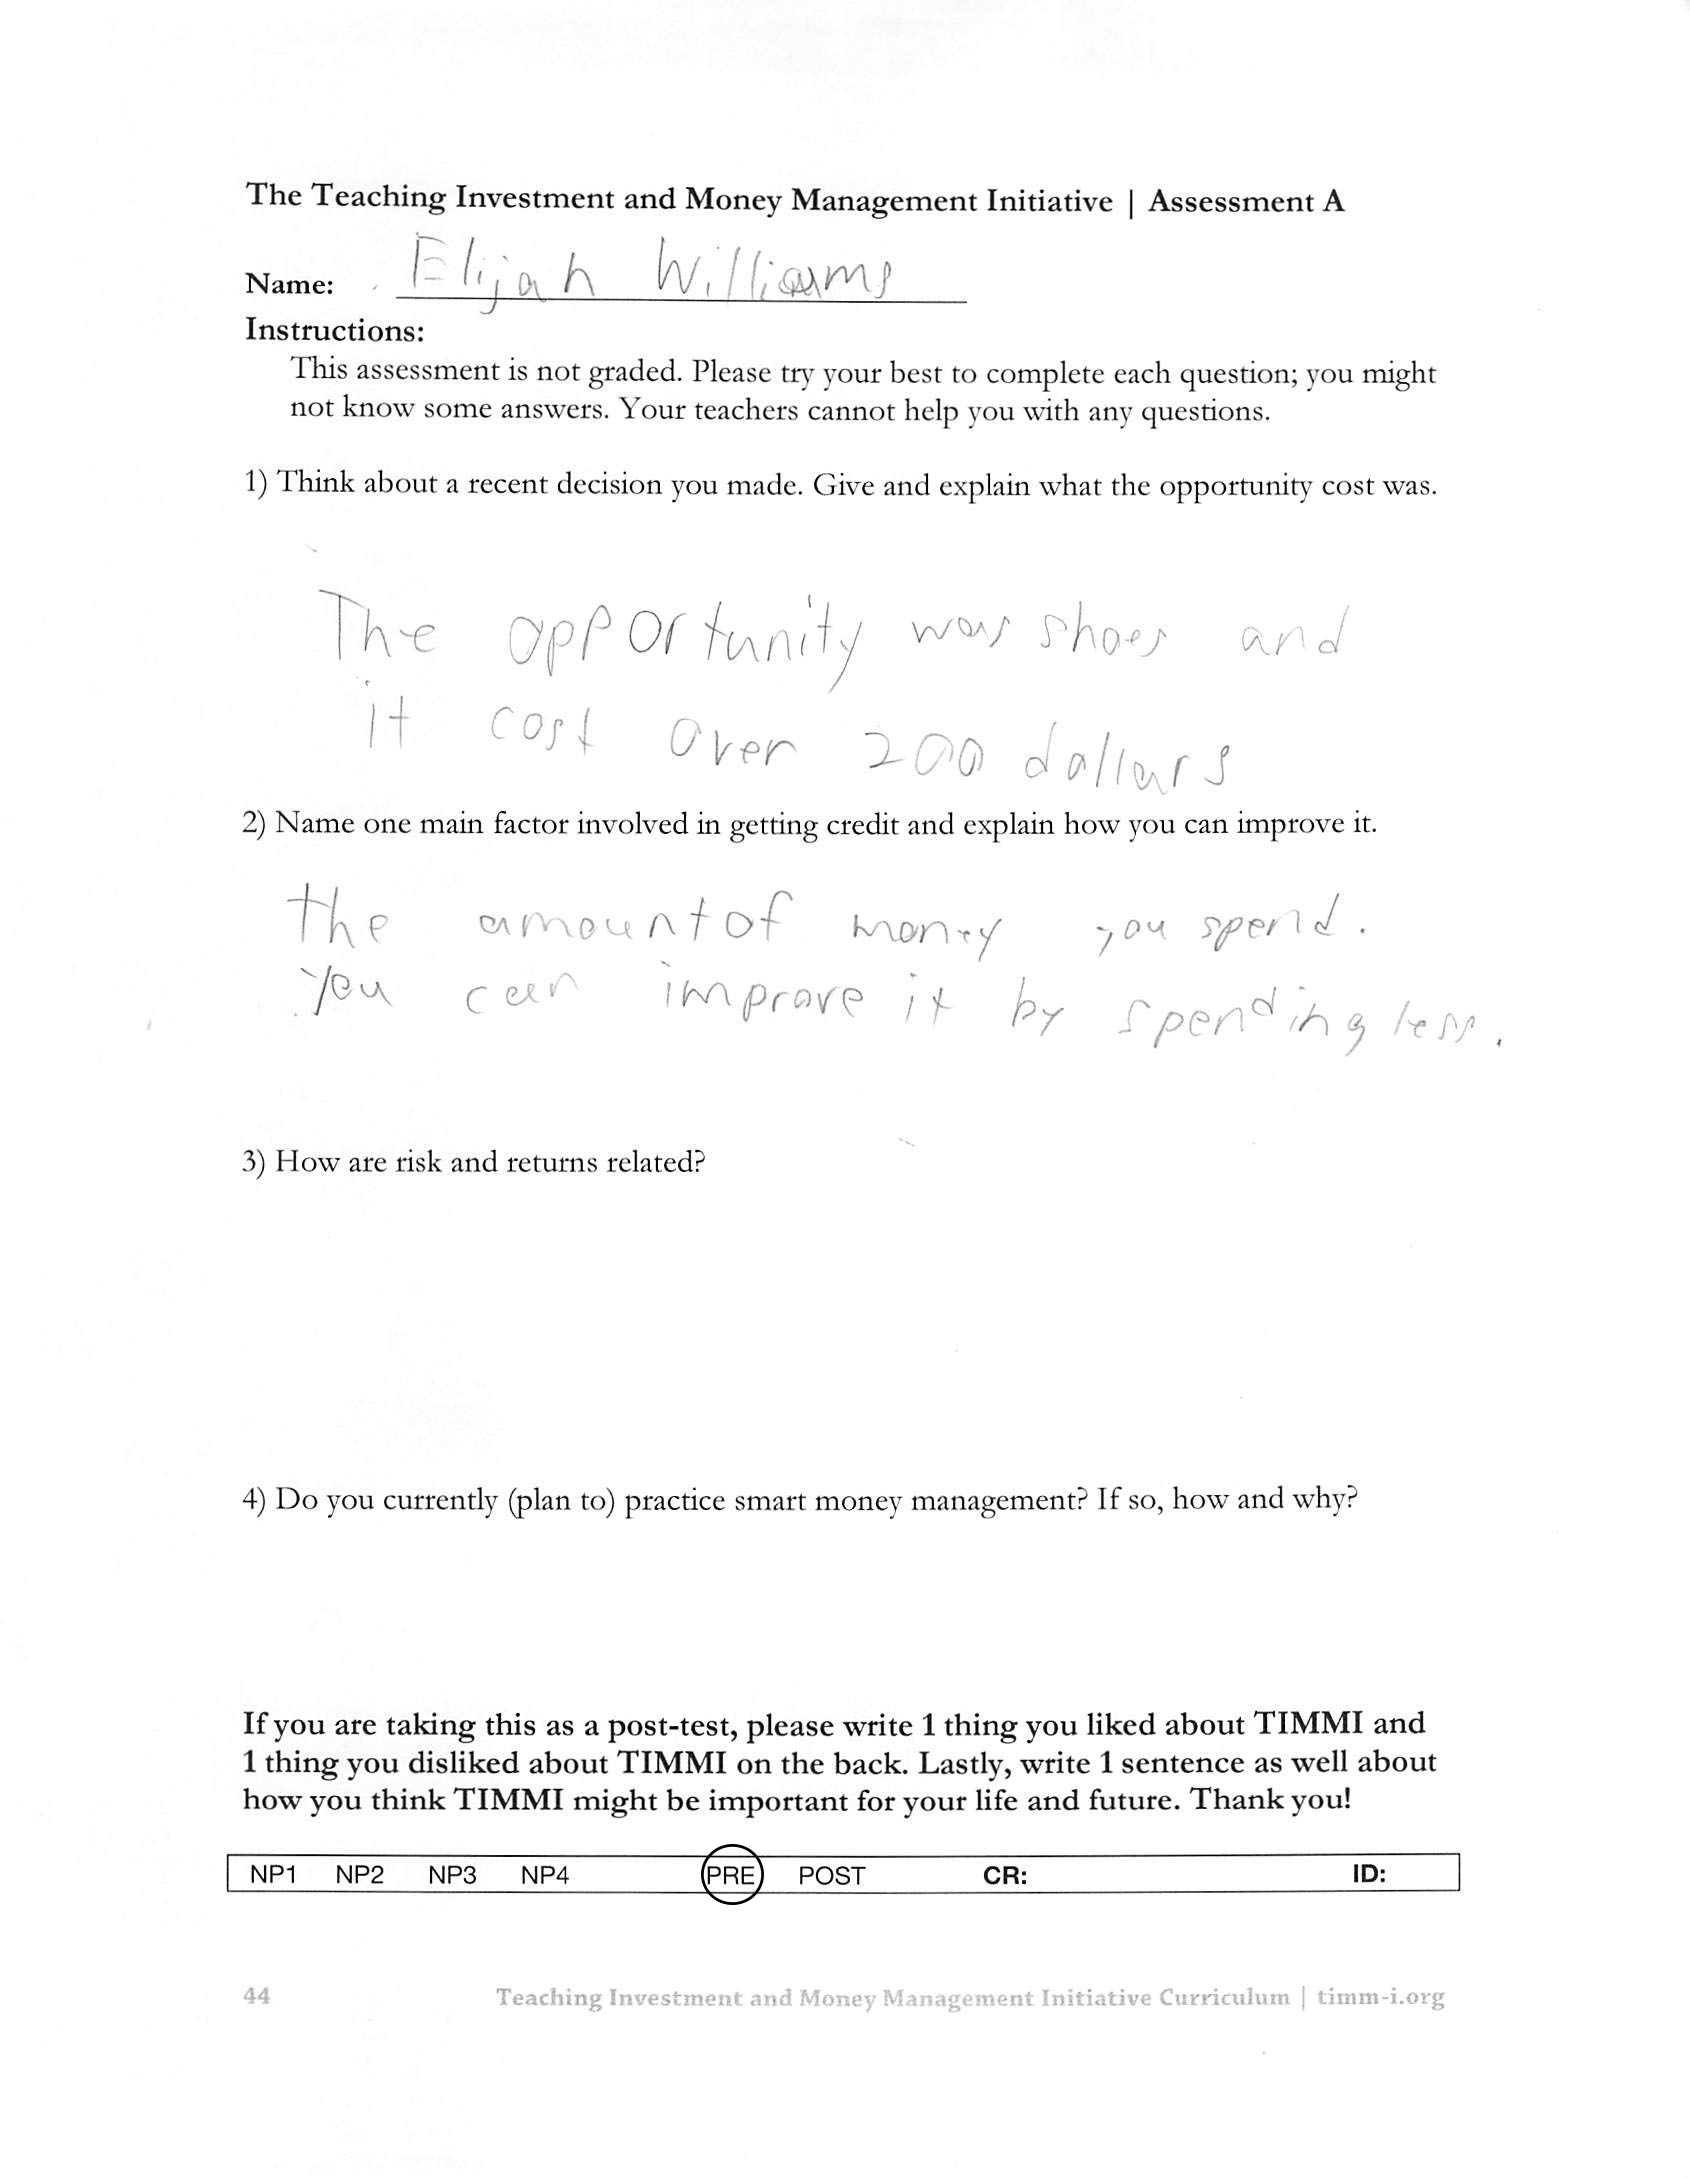 The Teaching Investment and Money Management Initiative | Assessment A
Name: Elijah Williams
Instructions:
This assessment is not graded. Please try your best to complete each question; you might
not know some answers. Your teachers cannot help you with any questions.
1) Think about a recent decision you made. Give and explain what the opportunity cost was.
The opportunity was shoes and
it cost over 200 dollars
2) Name one main factor involved in getting credit and explain how you can improve it.
the amount of money you spend.
You can improve it by spending less.
3) How are risk and returns related?
4) Do you currently (plan to) practice smart money management? If so, how and why?
If you are taking this as a post-test, please write 1 thing you liked about TIMMI and
1 thing you disliked about TIMMI on the back. Lastly, write 1 sentence as well about
how you think TIMMI might be important for your life and future. Thank you!
NP1 NP2 NP3 NP4 PRE POST CR: ID:
44 Teaching Investment and Money Management Initiative Curriculum | timm-i.org